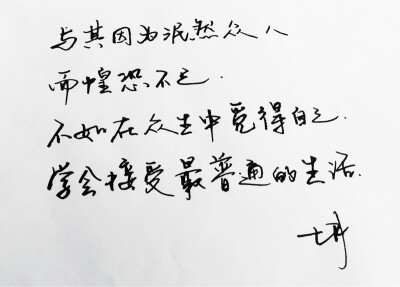 与其因为泯然众人
而惶恐不已.
不如在众生中觅得自己.
学会接受最普通的生活.